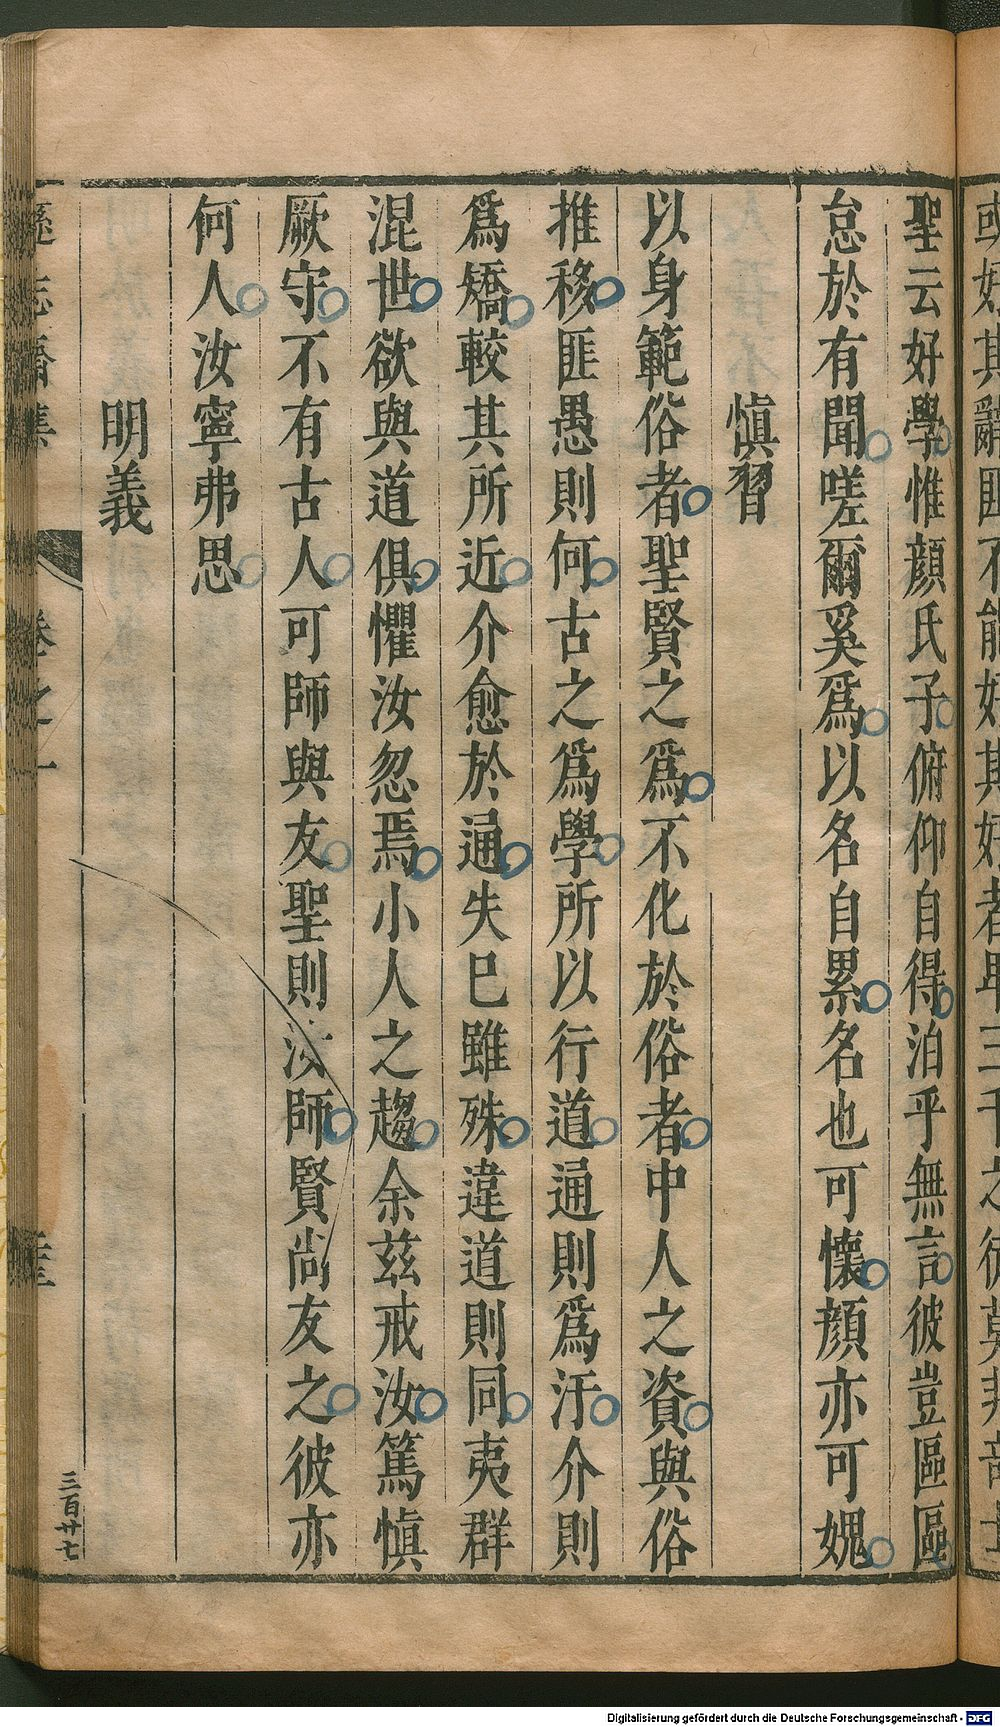 聖云好學惟顏氏子俯仰自得泊乎無言彼豈區區
怠於有聞嗟爾奚爲以名自累名也可懷顏亦可媿
愼習
以身範俗者聖賢之爲不化於俗者中人之資與俗
推移匪愚則何古之爲學所以行道通則爲汙介則
爲矯較其所近介愈於通失巳雖殊違道則同夷群
混世欲與道俱懼汝忽焉小人之趨余茲戒汝篤愼
厥守不有古人可師與友聖則汝師賢尚友之彼亦
何人汝寧弗思
明義
遜志齋集 卷之一
三百廿七
Digitalisierung gefördert durch die Deutsche Forschungsgemeinschaft - DFG